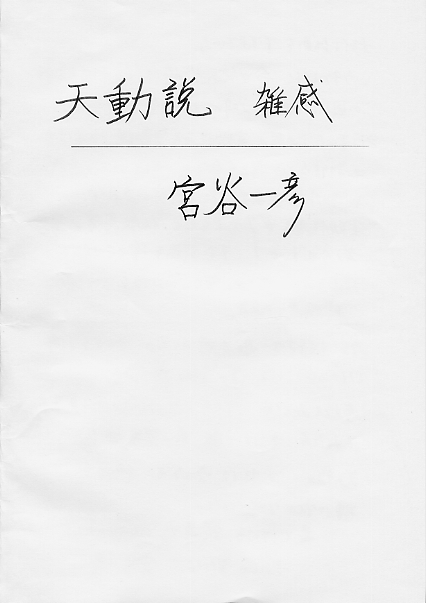 天動説 雑感
宮谷一彦